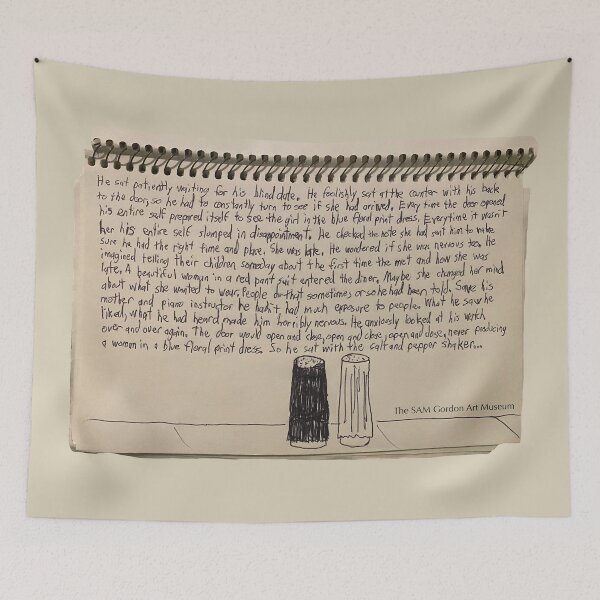 He sat patiently waiting for his blind date. He foolishly sat at the counter with his back
to the door, so he had to constantly turn to see if she had arrived. Every time the door opened
his entire self prepared itself to see the girl in the blue floral print dress. Everytime it wasn't
her his entire self slumped in disappointment. He checked the note she had sent him to make
sure he had the right time and place. She was late. He wondered if she was nervous too. He
imagined telling their children someday about the first time they met and how she was
late. A beautiful woman in a red pant suit entered the diner. Maybe she changed her mind
about what she wanted to wear. People do that sometimes or so he had been told. Save his
mother and piano instructor he hadn't had much exposure to people. What he saw he
liked, what he had heard made him horribly nervous. He anxiously looked at his watch
over and over again. The door would open and close, open and close, open and close, never producing
a woman in a blue floral print dress. So he sat with the salt and pepper shaker...
The SAM Gordon Art Museum